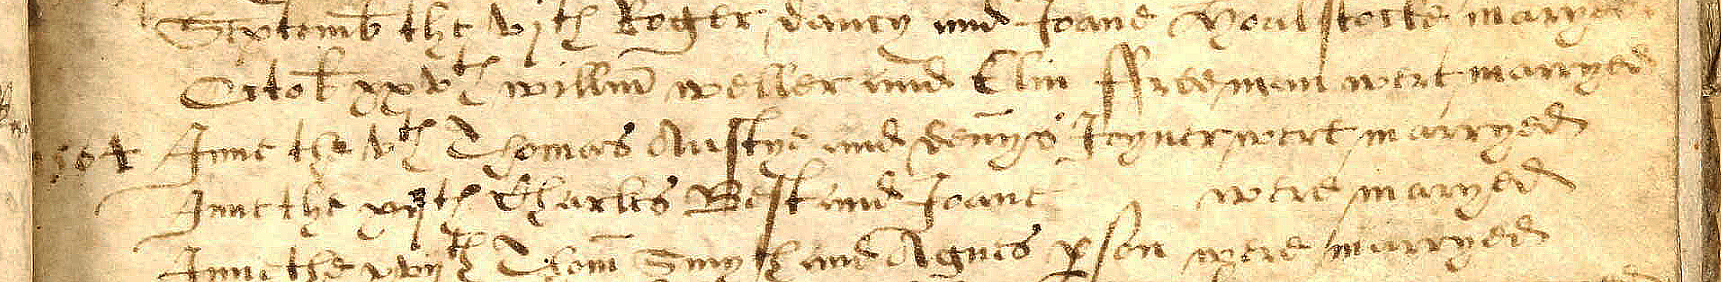 Septemb the vjth Roger dancy and Joane maryed
Octob xxvth willm weller and Elin ffreeman wert marryed
1564 June the vth Thomas Austye and denys Joyner wert marryed
June the xijth Charles Best and Joane were maryed
June the xvijth Thom Smyth and Agnes pson were marryed